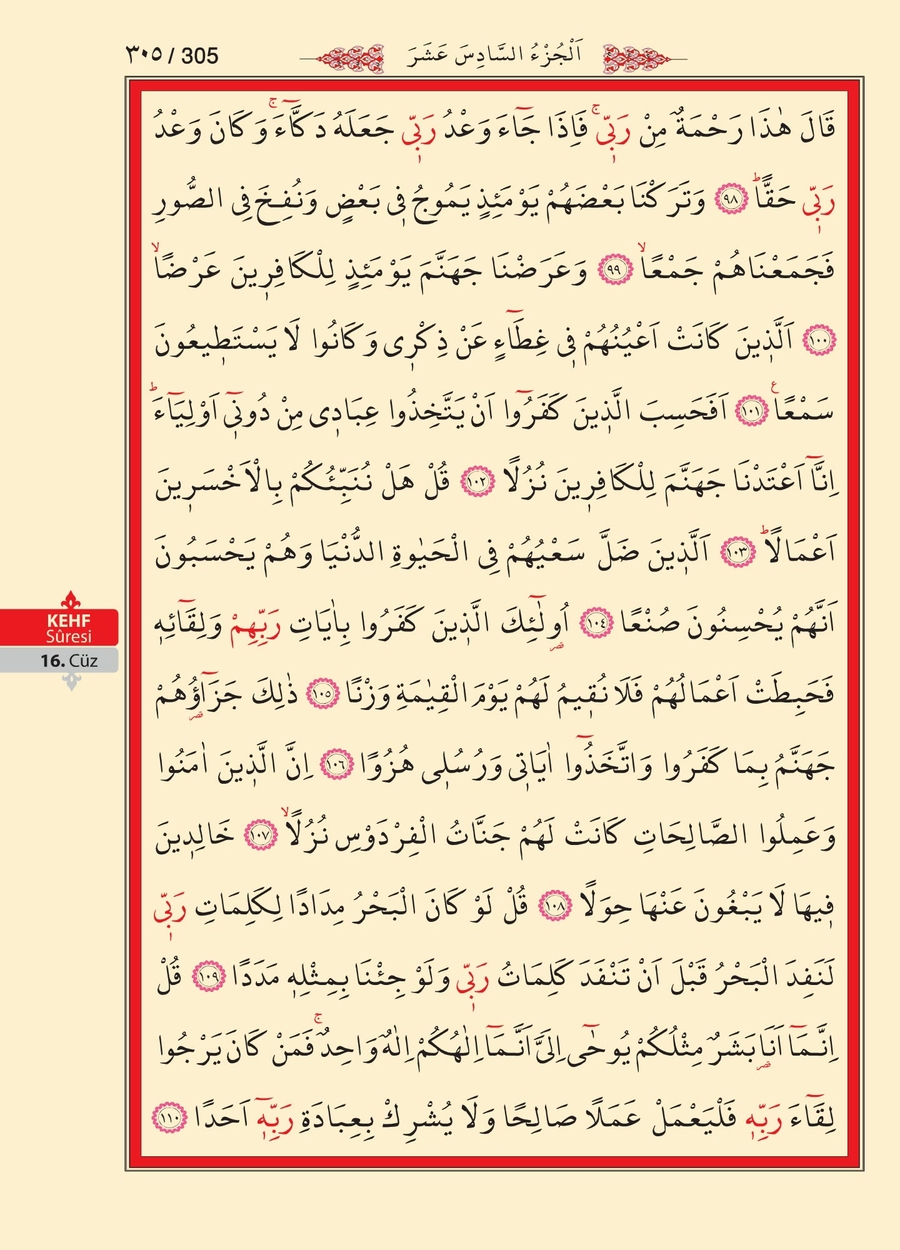 ٣٠٥ / 305
اَلْجُزْءُ السَّادِسَ عَشَرَ
قَالَ هٰذَا رَحْمَةٌ مِنْ رَبّ۪يۚ فَاِذَا جَٓاءَ وَعْدُ رَبّ۪ي جَعَلَهُ دَكَّٓاءَۚ وَكَانَ وَعْدُ
رَبّ۪ي حَقًّاۜ ﴿٩٨﴾ وَتَرَكْنَا بَعْضَهُمْ يَوْمَئِذٍ يَمُوجُ ف۪ي بَعْضٍ وَنُفِخَ فِي الصُّورِ
فَجَمَعْنَاهُمْ جَمْعًاۙ ﴿٩٩﴾ وَعَرَضْنَا جَهَنَّمَ يَوْمَئِذٍ لِلْكَافِر۪ينَ عَرْضًاۙ
﴿١٠٠﴾ اَلَّذ۪ينَ كَانَتْ اَعْيُنُهُمْ ف۪ي غِطَٓاءٍ عَنْ ذِكْر۪ي وَكَانُوا لَا يَسْتَط۪يعُونَ
سَمْعًا۟ ﴿١٠١﴾ اَفَحَسِبَ الَّذ۪ينَ كَفَرُٓوا اَنْ يَتَّخِذُوا عِبَاد۪ي مِنْ دُون۪ٓي اَوْلِيَٓاءَۜ
اِنَّٓا اَعْتَدْنَا جَهَنَّمَ لِلْكَافِر۪ينَ نُزُلًا ﴿١٠٢﴾ قُلْ هَلْ نُنَبِّئُكُمْ بِالْاَخْسَر۪ينَ
اَعْمَالًاۜ ﴿١٠٣﴾ اَلَّذ۪ينَ ضَلَّ سَعْيُهُمْ فِي الْحَيٰوةِ الدُّنْيَا وَهُمْ يَحْسَبُونَ
اَنَّهُمْ يُحْسِنُونَ صُنْعًا ﴿١٠٤﴾ اُو۬لٰٓئِكَ الَّذ۪ينَ كَفَرُوا بِاٰيَاتِ رَبِّهِمْ وَلِقَٓائِه۪
فَحَبِطَتْ اَعْمَالُهُمْ فَلَا نُق۪يمُ لَهُمْ يَوْمَ الْقِيٰمَةِ وَزْنًا ﴿١٠٥﴾ ذٰلِكَ جَزَٓاؤُ۬هُمْ
جَهَنَّمُ بِمَا كَفَرُوا وَاتَّخَذُٓوا اٰيَات۪ي وَرُسُل۪ي هُزُوًا ﴿١٠٦﴾ اِنَّ الَّذ۪ينَ اٰمَنُوا
وَعَمِلُوا الصَّالِحَاتِ كَانَتْ لَهُمْ جَنَّاتُ الْفِرْدَوْسِ نُزُلًاۙ ﴿١٠٧﴾ خَالِد۪ينَ
ف۪يهَا لَا يَبْغُونَ عَنْهَا حِوَلًا ﴿١٠٨﴾ قُلْ لَوْ كَانَ الْبَحْرُ مِدَادًا لِكَلِمَاتِ رَبّ۪ي
لَنَفِدَ الْبَحْرُ قَبْلَ اَنْ تَنْفَدَ كَلِمَاتُ رَبّ۪ي وَلَوْ جِئْنَا بِمِثْلِه۪ مَدَدًا ﴿١٠٩﴾ قُلْ
اِنَّمَٓا اَنَا۬ بَشَرٌ مِثْلُكُمْ يُوحٰٓى اِلَيَّ اَنَّمَٓا اِلٰهُكُمْ اِلٰهٌ وَاحِدٌۚ فَمَنْ كَانَ يَرْجُوا
لِقَٓاءَ رَبِّه۪ فَلْيَعْمَلْ عَمَلًا صَالِحًا وَلَا يُشْرِكْ بِعِبَادَةِ رَبِّه۪ٓ اَحَدًا ﴿١١٠﴾
KEHF
Sûresi
16. Cüz